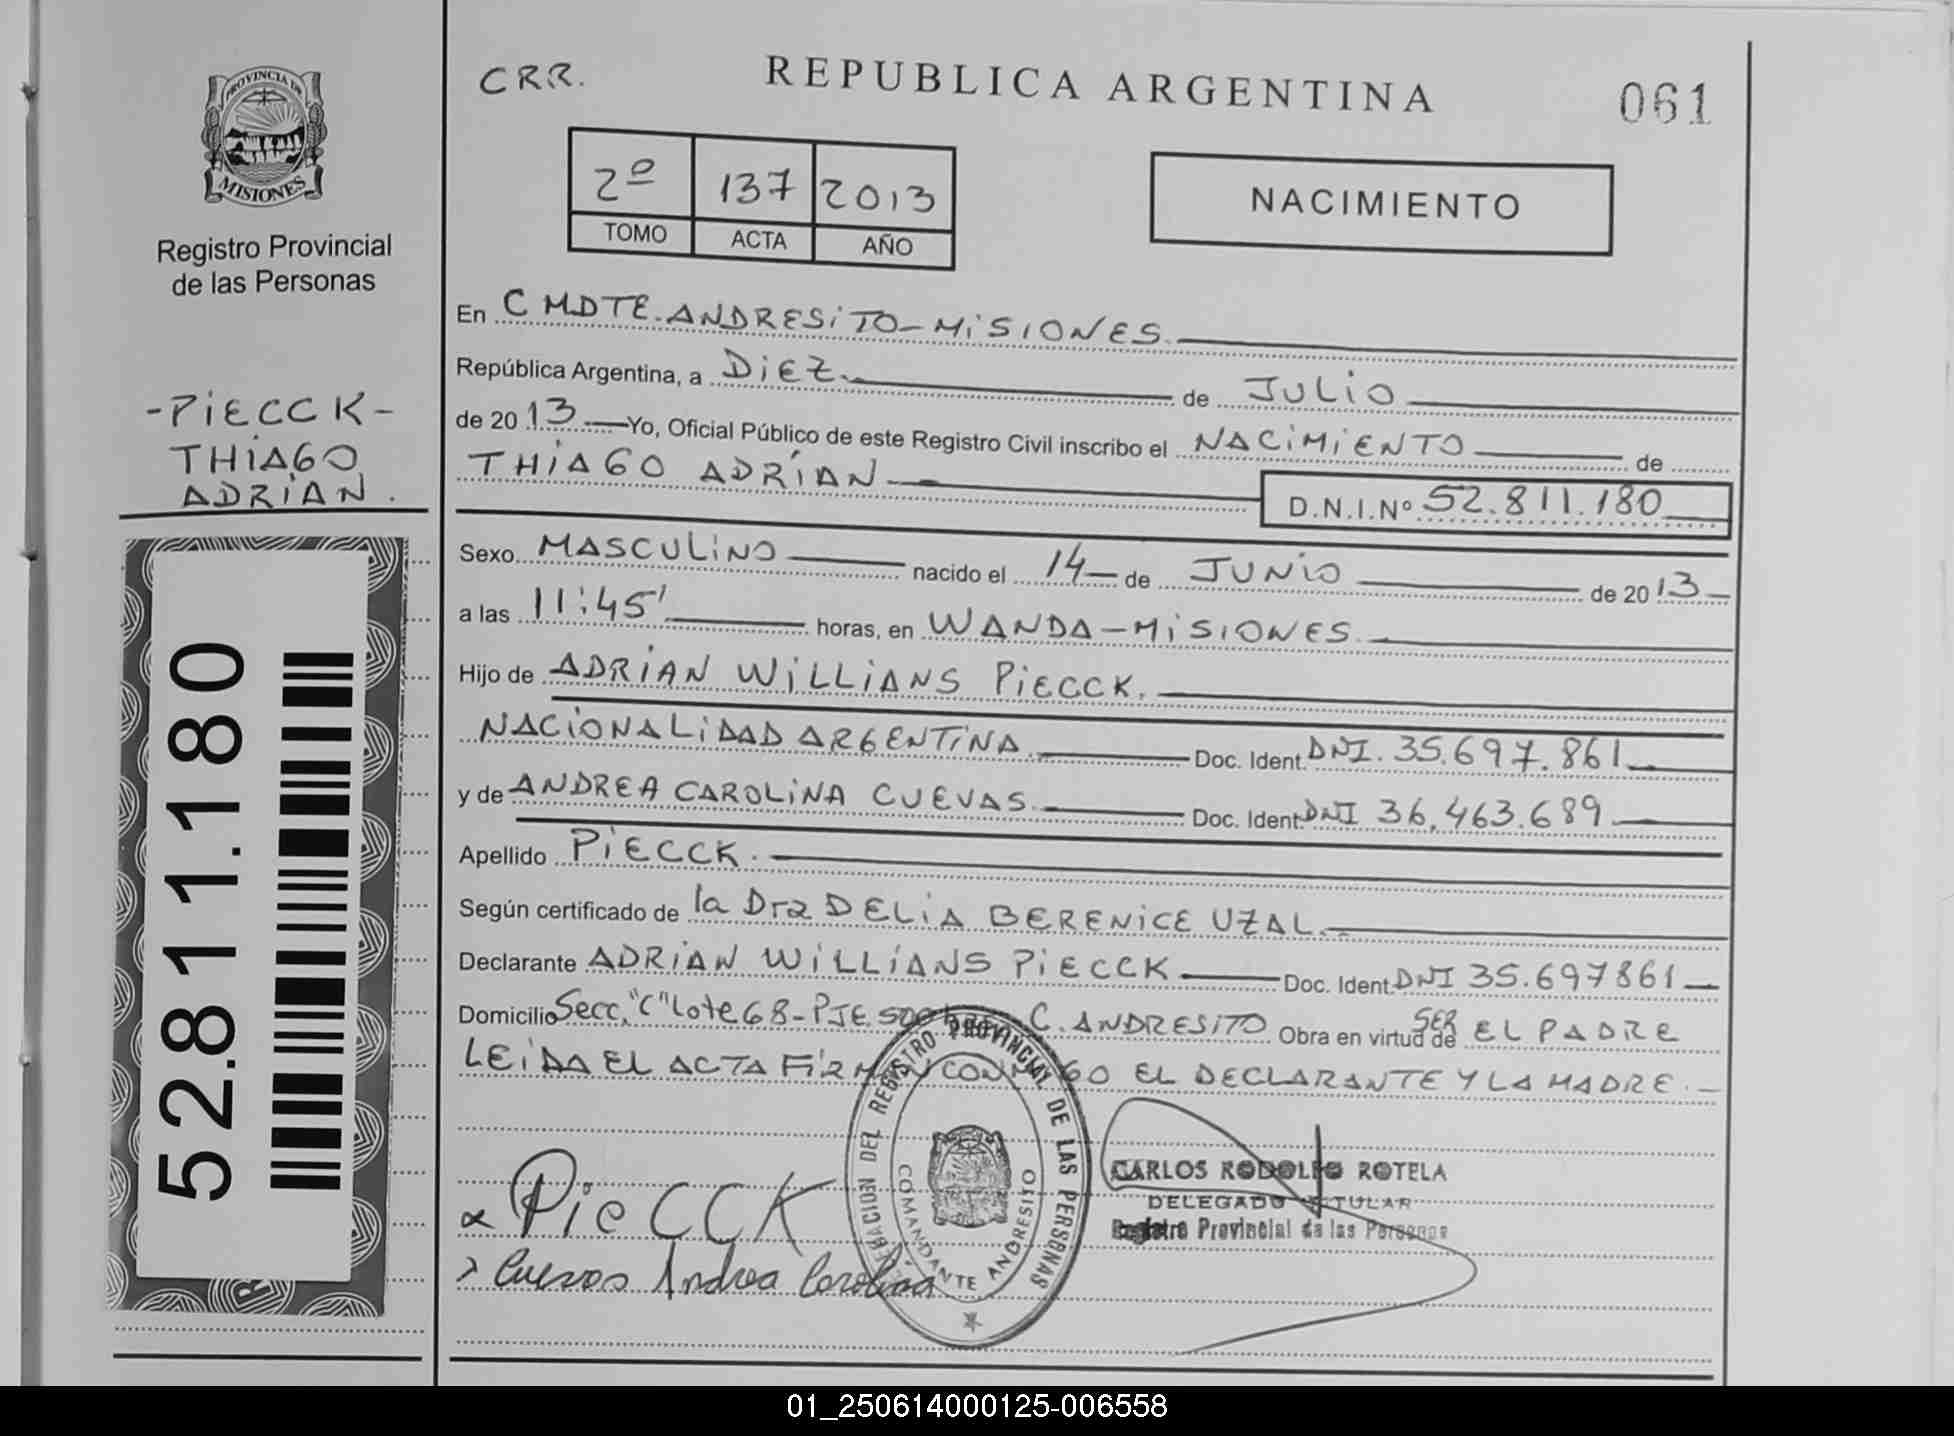 PROVINCIA DE
MISIONES
Registro Provincial
de las Personas
-PIECCK-
THIAGO
ADRIAN.
52.811.180
CRR.
REPUBLICA ARGENTINA
061
2º 137 2013
TOMO ACTA AÑO
NACIMIENTO
En CMDTE. ANDRESITO-MISIONES.
República Argentina, a DIEZ. de JULIO
de 2013 Yo, Oficial Público de este Registro Civil inscribo el NACIMIENTO de
THIAGO ADRÍAN D.N.I.Nº 52.811.180
Sexo MASCULINO nacido el 14 de JUNIO de 2013
a las 11:45' horas, en WANDA-MISIONES.
Hijo de ADRIAN WILLIANS PIECCK.
NACIONALIDAD ARGENTINA. Doc. Ident. DNI. 35.697.861
y de ANDREA CAROLINA CUEVAS. Doc. Ident. DNI 36.463.689
Apellido PIECCK.
Según certificado de la Dra DELIA BERENICE UZAL.
Declarante ADRIAN WILLIANS PIECCK Doc. Ident. DNI 35.697861
Domicilio Secc. "C" Lote 68-PJE. C. ANDRESITO Obra en virtud de SER EL PADRE
LEIDA EL ACTA FIRMAN CONMIGO EL DECLARANTE Y LA MADRE.-
DELEGACION DEL REGISTRO PROVINCIAL DE LAS PERSONAS
COMANDANTE ANDRESITO
CARLOS RODOLFO ROTELA
DELEGADO TITULAR
Registro Provincial de las Personas
PieCCK
Cuevas Andrea Carolina
01_250614000125-006558